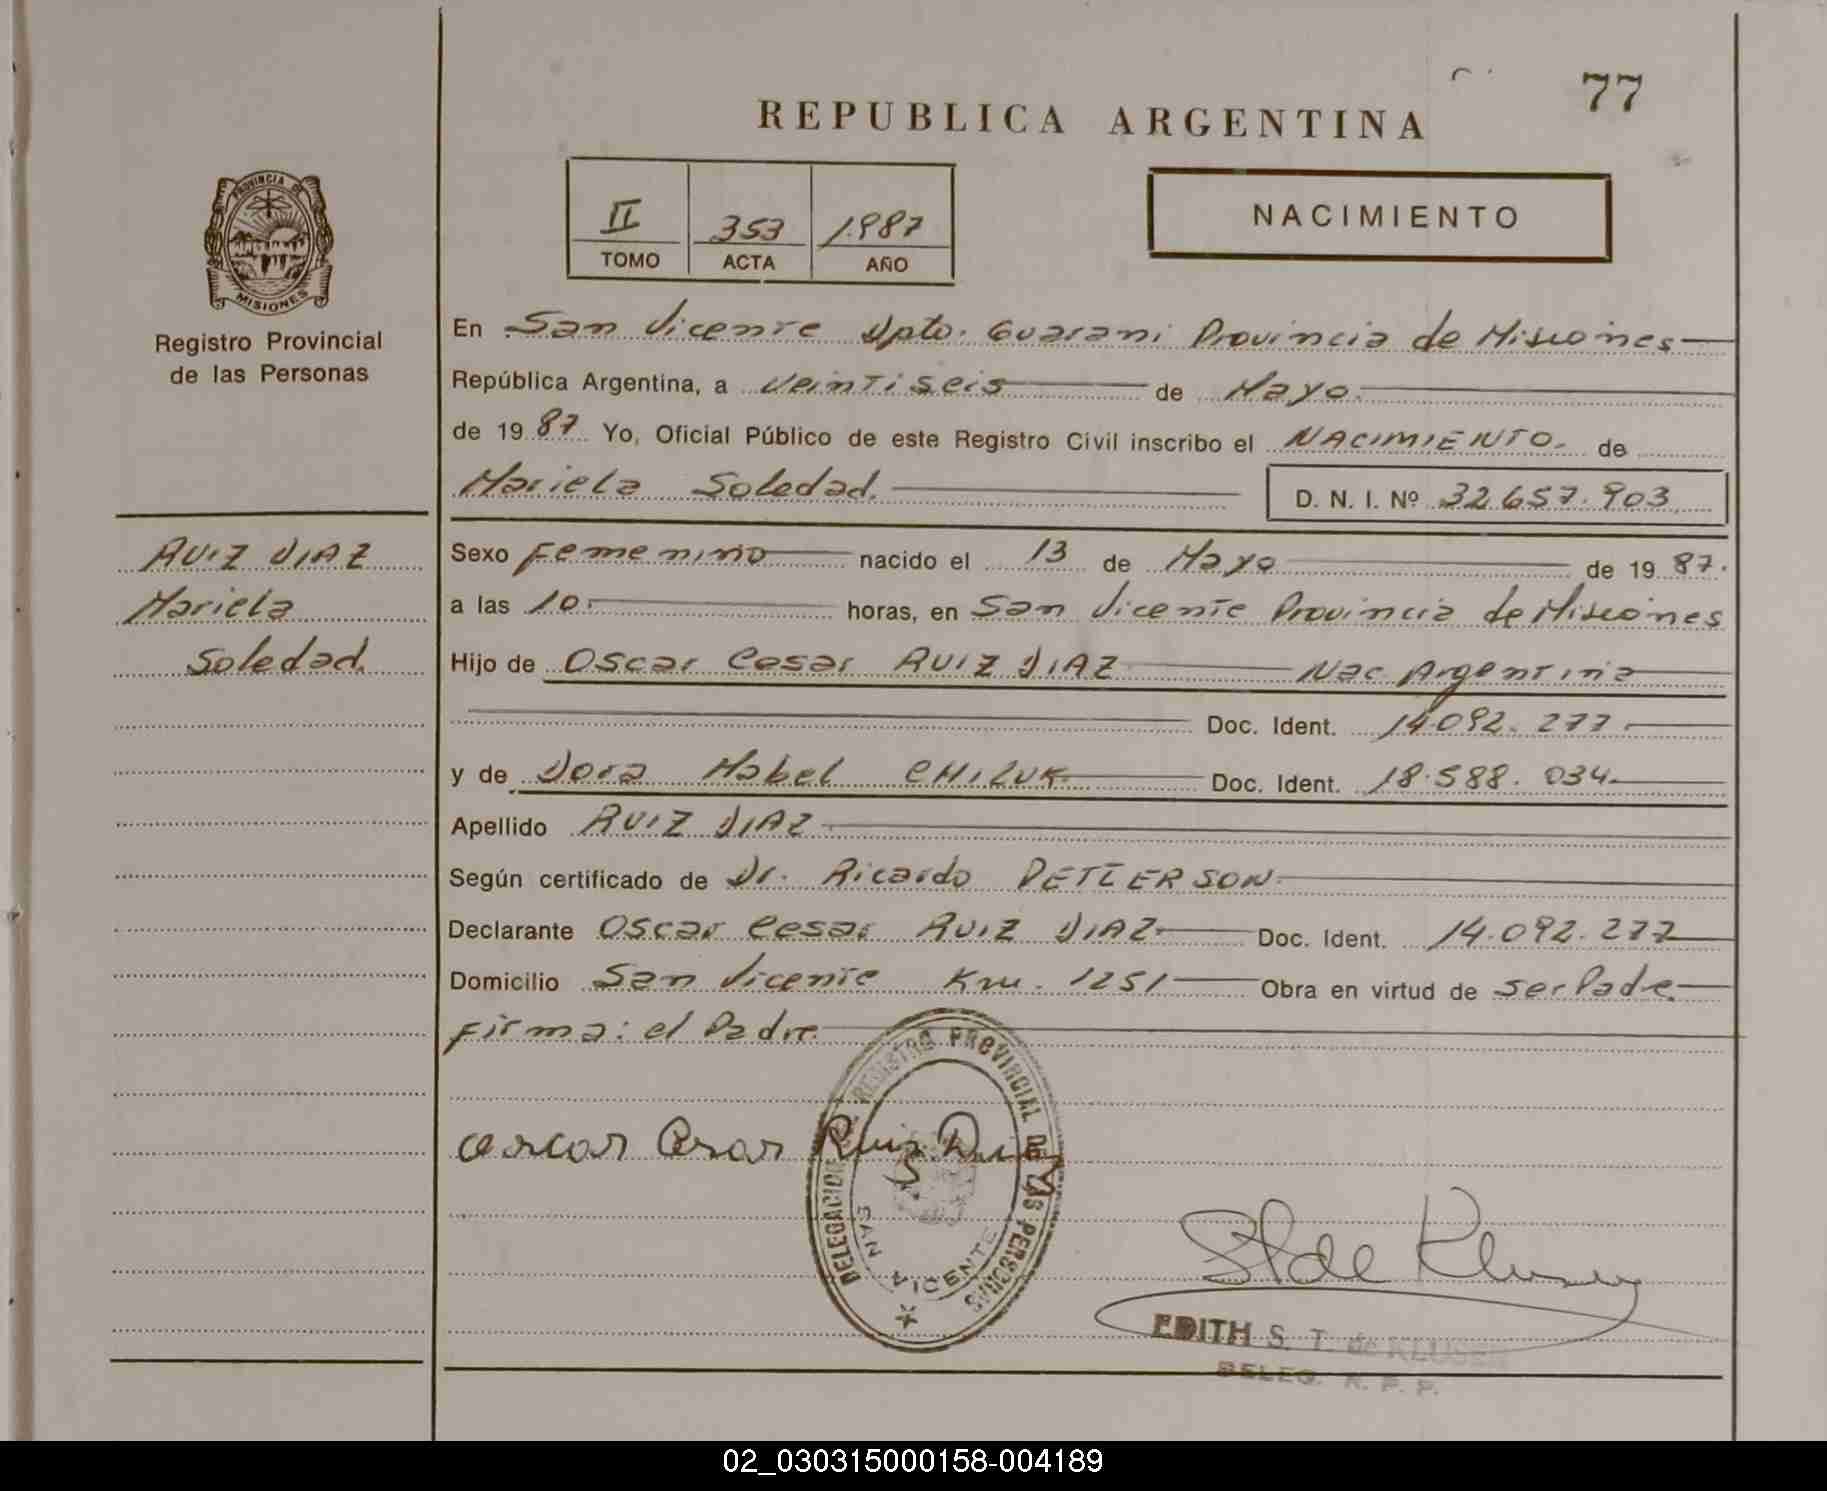 77
REPUBLICA ARGENTINA
PROVINCIA DE
MISIONES
Registro Provincial
de las Personas
II 353 1987
TOMO ACTA AÑO
NACIMIENTO
En San Vicente Dpto. Guarani Provincia de Misiones
República Argentina, a veintiseis de Mayo.
de 1987 Yo, Oficial Público de este Registro Civil inscribo el NACIMIENTO. de
Mariela Soledad. D. N. I. Nº 32.657.903
RUIZ DIAZ
Mariela
Soledad.
Sexo femenino nacido el 13 de Mayo de 1987.
a las 10. horas, en San Vicente Provincia de Misiones
Hijo de Oscar Cesar RUIZ DIAZ Nac Argentina
Doc. Ident. 14.092.277
y de Dora Mabel CHILUK Doc. Ident. 18.588.034
Apellido RUIZ DIAZ
Según certificado de Dr. Ricardo PETTERSON
Declarante Oscar Cesar RUIZ DIAZ Doc. Ident. 14.092.277
Domicilio San Vicente Km. 1251 Obra en virtud de ser Padre
firma: el Padre.
Oscar Cesar Ruiz Diaz
DELEGACION REGISTRO PROVINCIAL DE LAS PERSONAS
SAN VICENTE
EDITH S. T. de KLUSEN
DELEG. R. P. P.
02_030315000158-004189